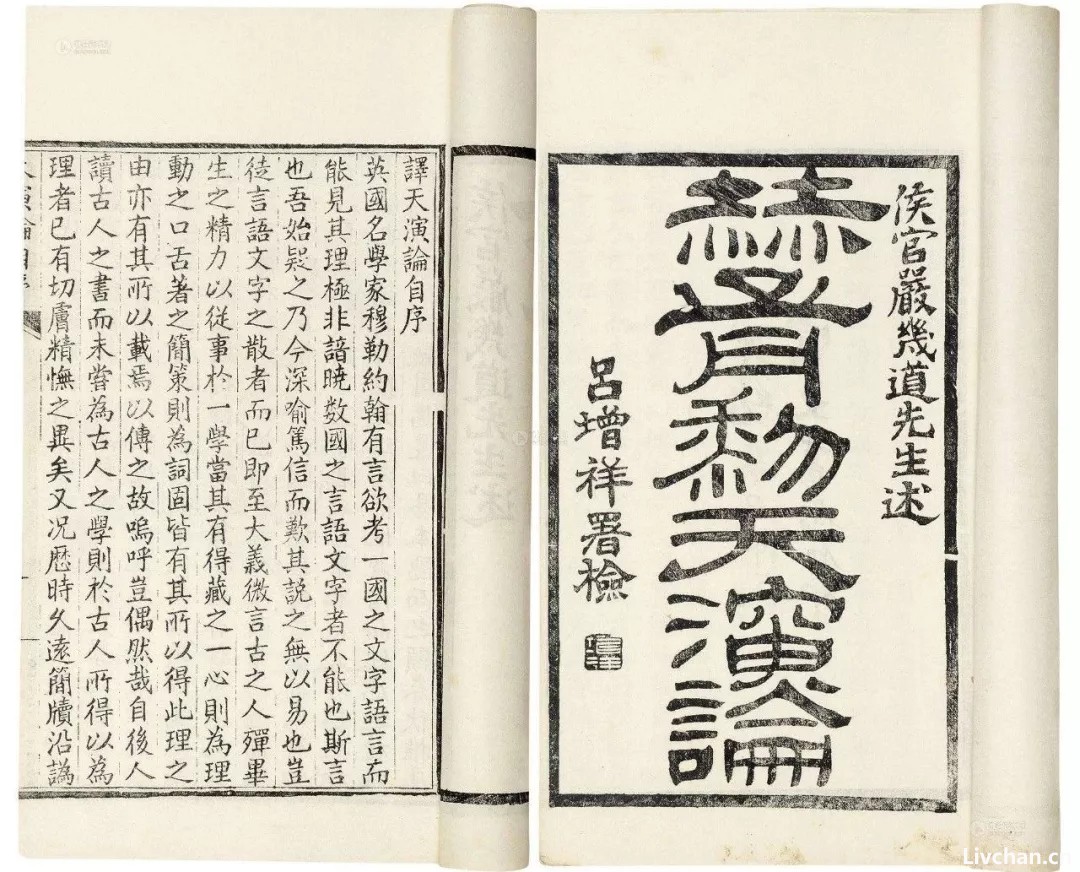 侯官嚴幾道先生述
赫胥黎天演論
呂增祥署檢
譯天演論自序
英國名學家穆勒約翰有言欲考一國之文字語言而
能見其理極非諳曉数國之言語文字者不能也斯言
也吾始疑之乃今深喻篤信而歎其說之無以易也豈
徒言語文字之散者而已即至大義微言古之人殫畢
生之精力以從事於一學當其有得藏之一心則為理
動之口舌著之簡策則為詞固皆有其所以得此理之
由亦有其所以載焉以傳之故嗚呼豈偶然哉自後人
讀古人之書而未嘗為古人之學則於古人所得以為
理者已有切膚精憮之異矣又况歷時久遠簡牘沿譌
天演論自序
Livchan.c